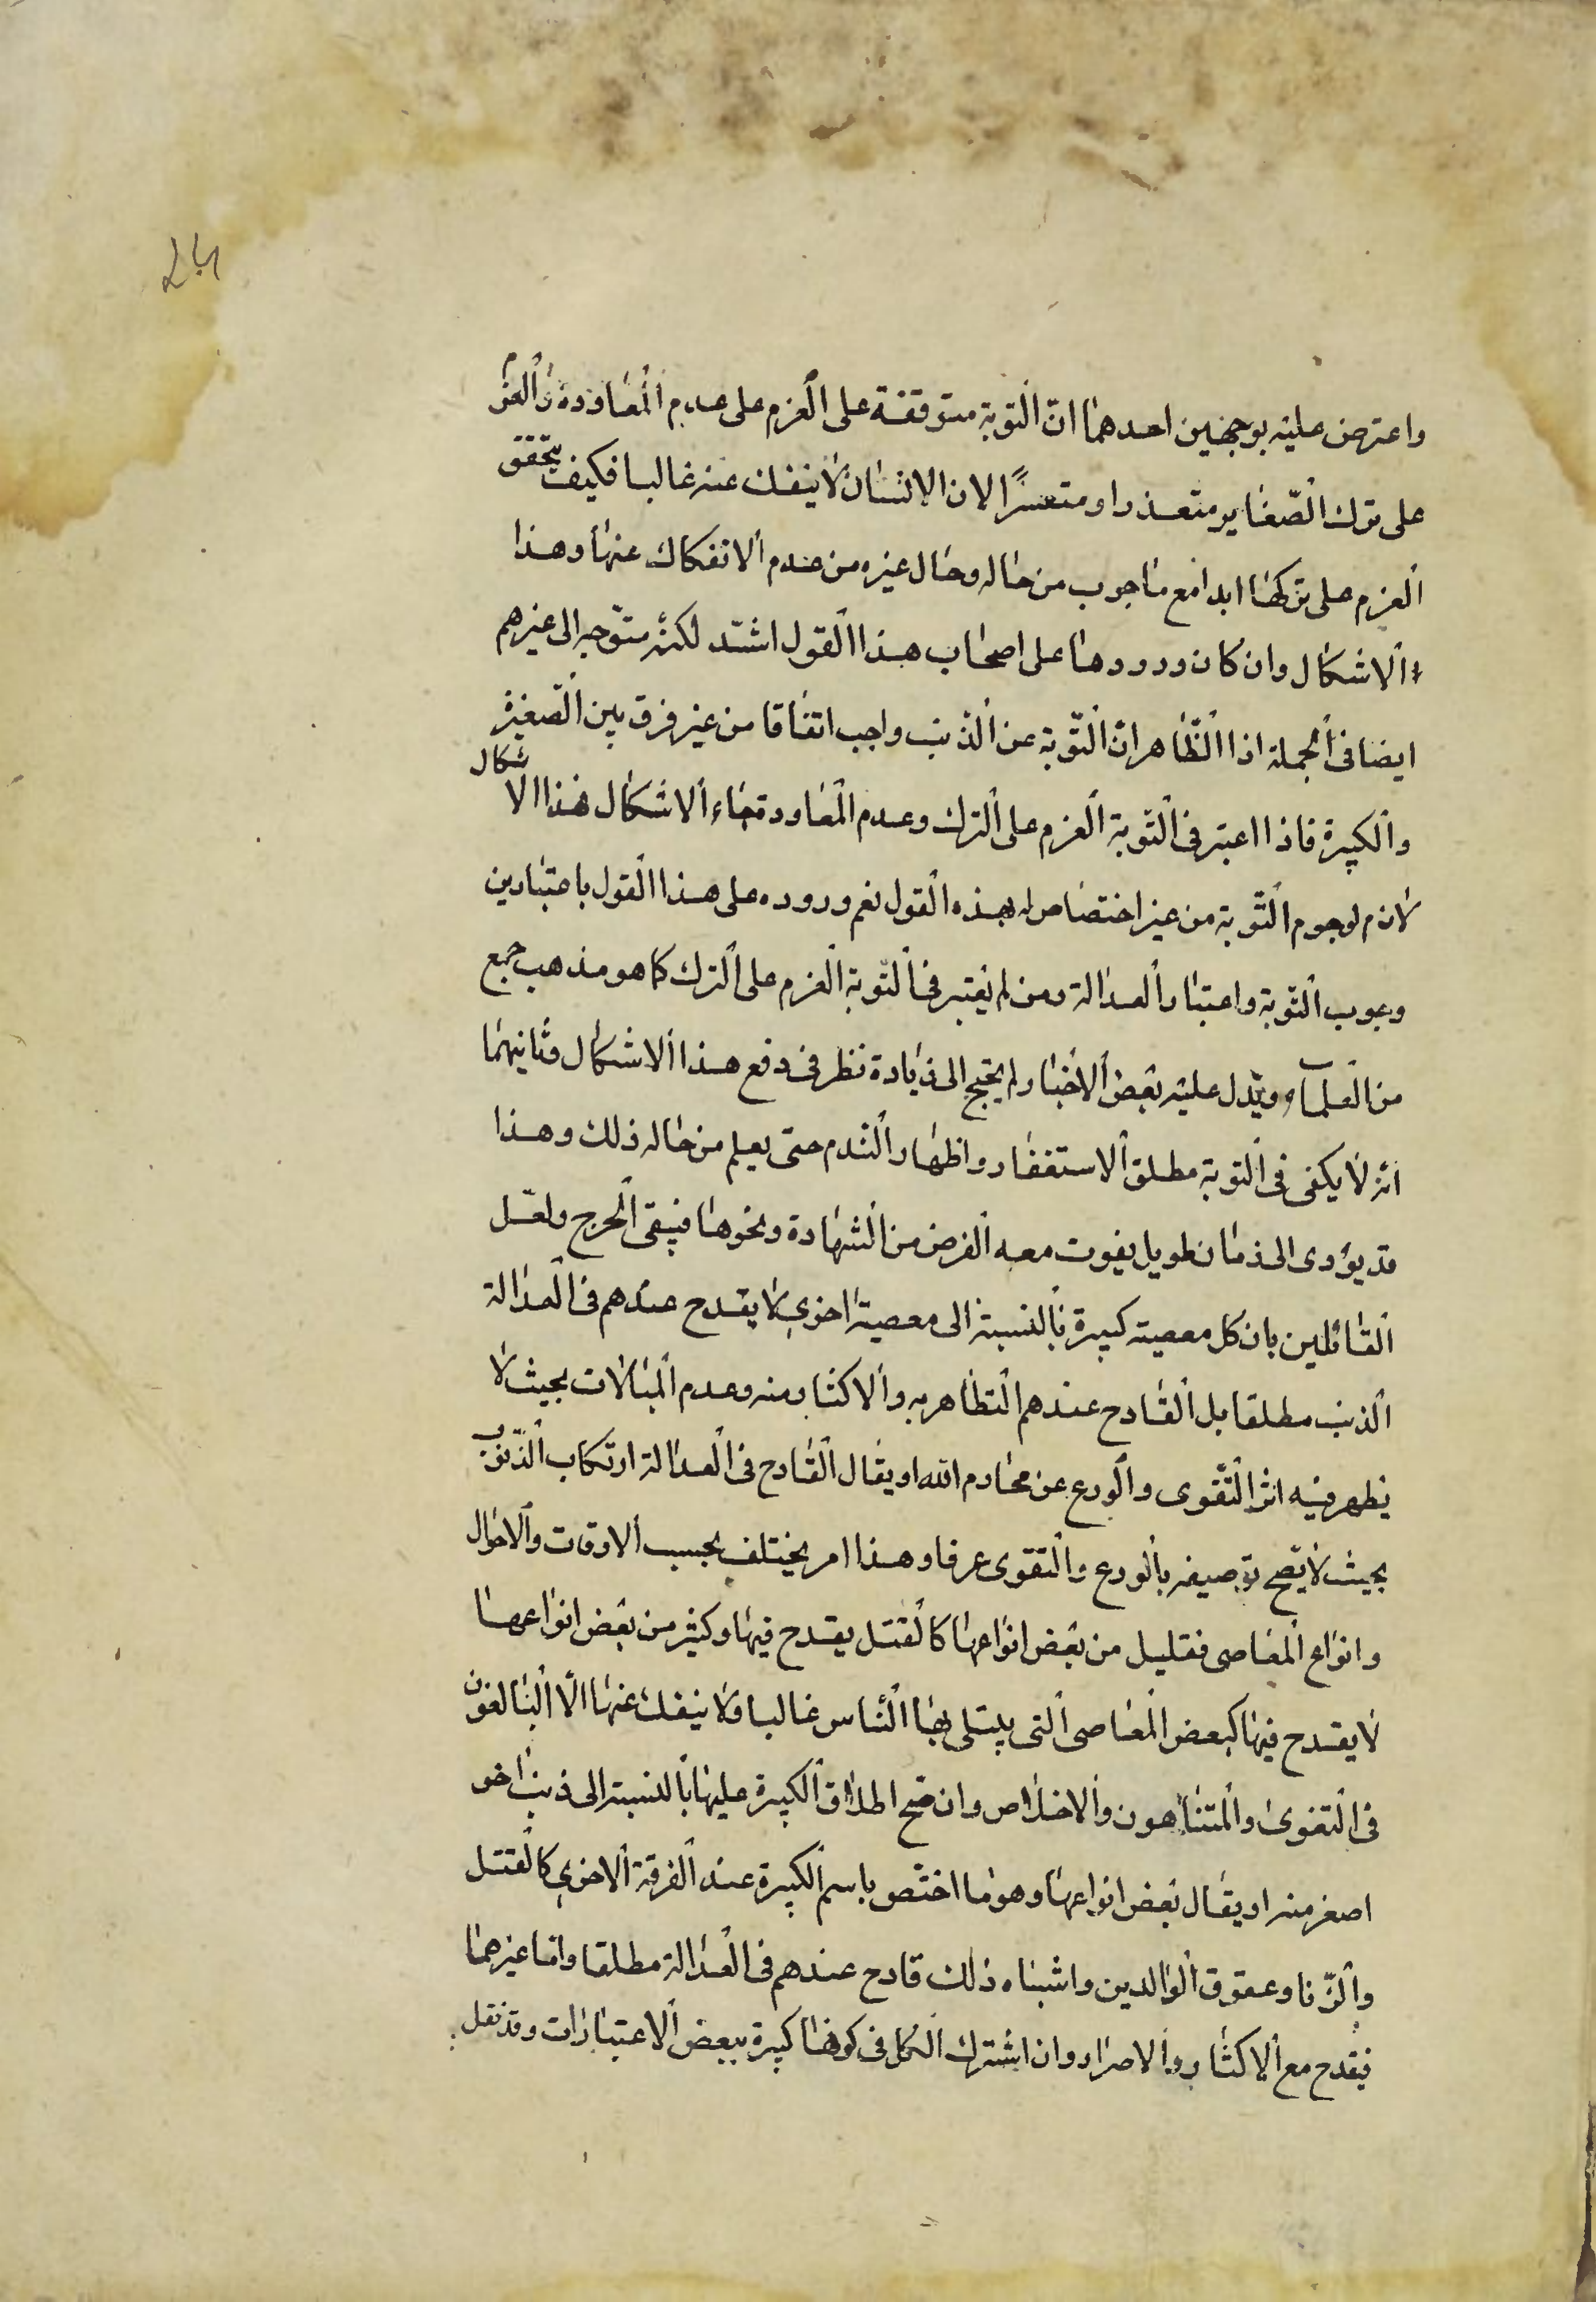 واعترض عليه بوجهين احدهما انّ التوبة متوقفة على العزم على عدم المعاودة والعزم
على ترك الصّغاير متعذرا او متعسرًا لان الانسان لا ينفك عنه غالبا فكيف يتحقق
العزم على تركها ابدا مع ما جرب من حاله وحال غيره من عدم الانفكاك عنها وهذا
الاشكال وان كان ورودها على اصحاب هذا القول اشتد لكنّه متوّجه الى غيرهم
ايضا فى الجملة اذا الظّاهر انّ التّوبة عن الذنب واجب اتفاقا من غير فرق بين الصّغيرة
والكبيرة فاذا اعتبر فى التّوبة العزم على الترك وعدم المعاودة جاء الاشكال فهذا الاشكال
لازم لوجوم التّوبة من غير اختصاص له بهذه القول نعم وروده على هذا القول باعتبارين
وجوب التّوبة واعتبار العدالة ومن لم يعتبر فى التّوبة العزم على الترك كما هو مذهب جمع
من العلماء ويدل عليه بعض الاخبار لم يحتج الى زيادة نظر فى دفع هذا الاشكال وثانيهما
انّه لا يكفى فى التوبة مطلق الاستغفار واظهار الندم حتى يعلم من حاله ذلك وهذا
قد يؤدى الى زمان طويل يفوت معه الغرض من الشهادة ونحوها فيبقى الحرج ولعّل
القائلين بان كل معصيته كبيرة بالنسبة الى معصية اخرى لا يقدح عندهم فى العدالة
الذنب مطلقا بل القادح عندهم التظاهر به والاكثار منه وعدم المبالات بحيث لا
يظهر فيه اثر التّقوى والورع عن محارم الله او يقال القادح فى العدالة ارتكاب الذّنوب
بحيث لا يصّح توصيفه بالورع والتقوى عرفا وهذا امر يختلف بحسب الاوقات والاحوال
وانواع المعاصى فقليل من بعض انواعها كالقتل يقدح فيها وكثير من بعض انواعها
لا يقدح فيها كبعض المعاصى التى يبتلى بها الناس غالبا ولا ينفك عنها الّا البالغون
فى التقوى والمتناهون والاخلاص وان صّح اطلاق الكبيرة عليها بالنسبة الى ذنب اخر
اصغر منه او يقال بعض انواعها وهو ما اختّص باسم الكبيرة عند الفرقة الاخرى كالقتل
والزّنا وعقوق الوالدين واشباه ذلك قادح عندهم فى العدالة مطلقا واما غيرهما
فيقدح مع الاكثار والاصرار وان اشترك الكل فى كونها كبيرة ببعض الاعتبارات وقد نقل